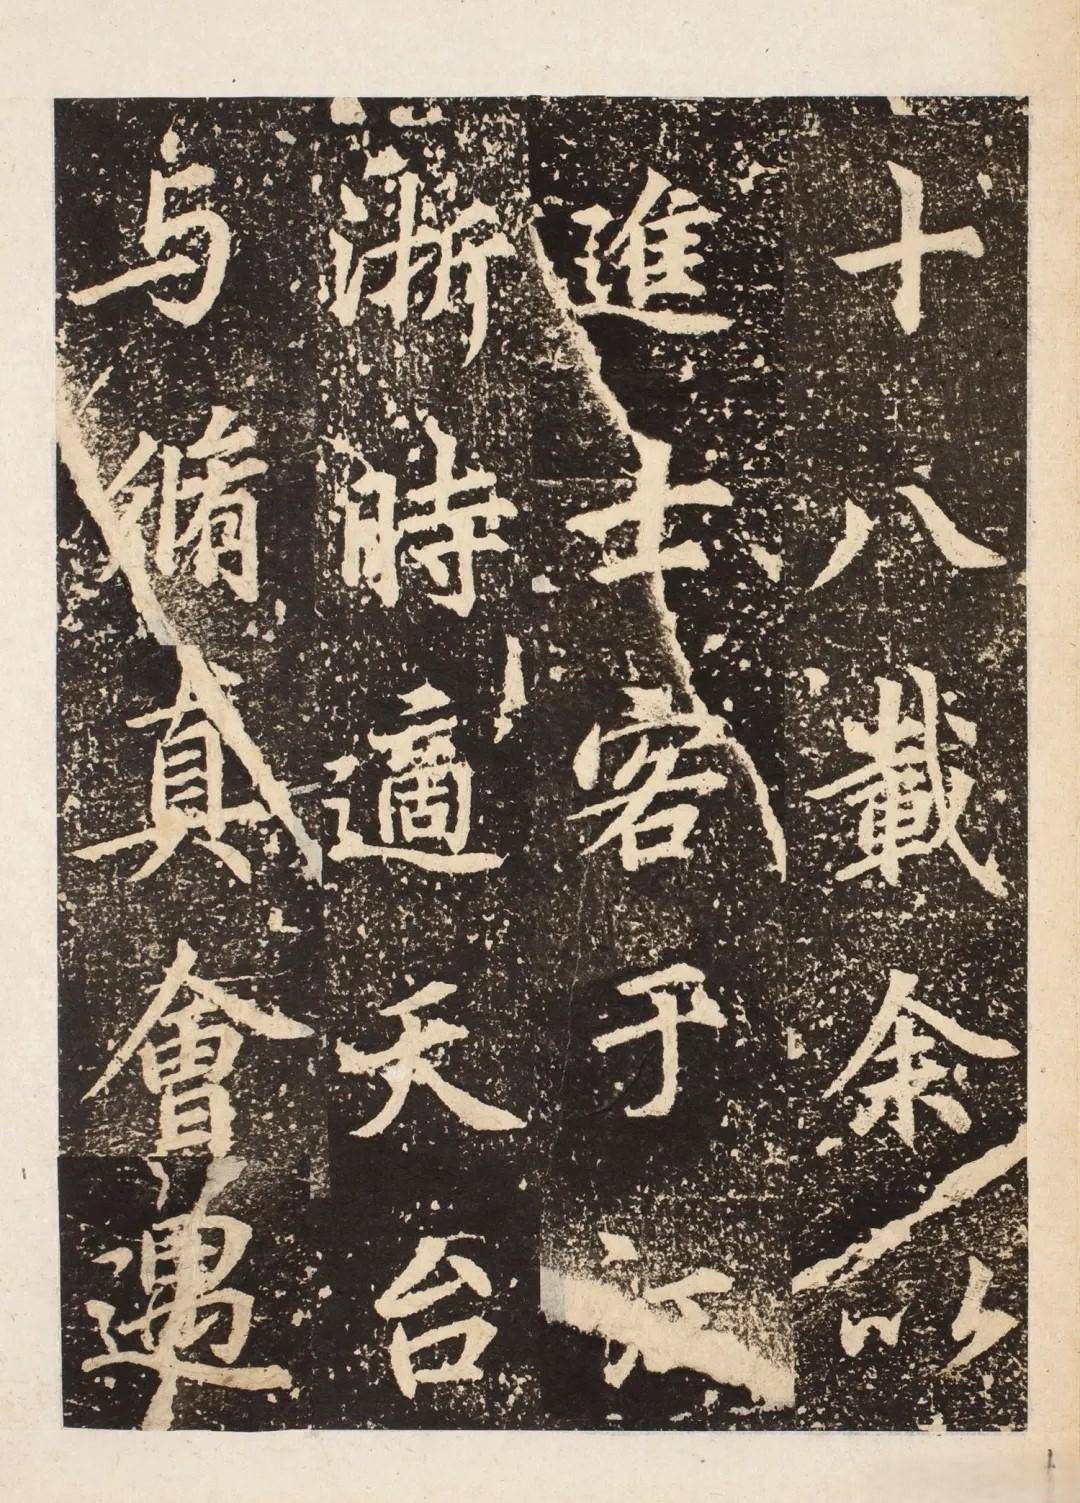 十八載余以
進士客于
浙時適天台
与脩真會遇